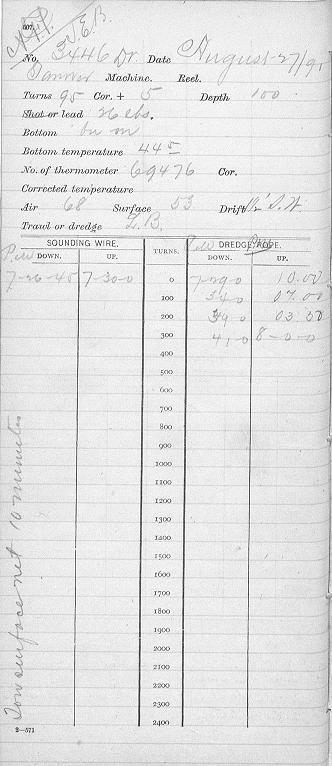 607.
J.E.B.
No. 3446 Dr. Date August 27/91
Tanner Machine. Reel.
Turns 95 Cor. + 5 Depth 100
Shot or lead 26 lbs.
Bottom bu m
Bottom temperature 44 5
No. of thermometer 69476 Cor.
Corrected temperature
Air 68 Surface 53 Drift S.W.
Trawl or dredge L.B.
P.M. P.M.
SOUNDING WIRE. TURNS. DREDGE ROPE.
DOWN. UP. DOWN. UP.
7-26-45 7-30-0 0 7-29-0 10.00
100 34-0 07.00
200 39-0 03.30
300 41-0 8-0-0
400
500
600
700
800
900
1000
1100
1200
1300
1400
1500
1600
1700
1800
1900
2000
2100
2200
2300
2400
2—571
Tow surface net 10 minutes